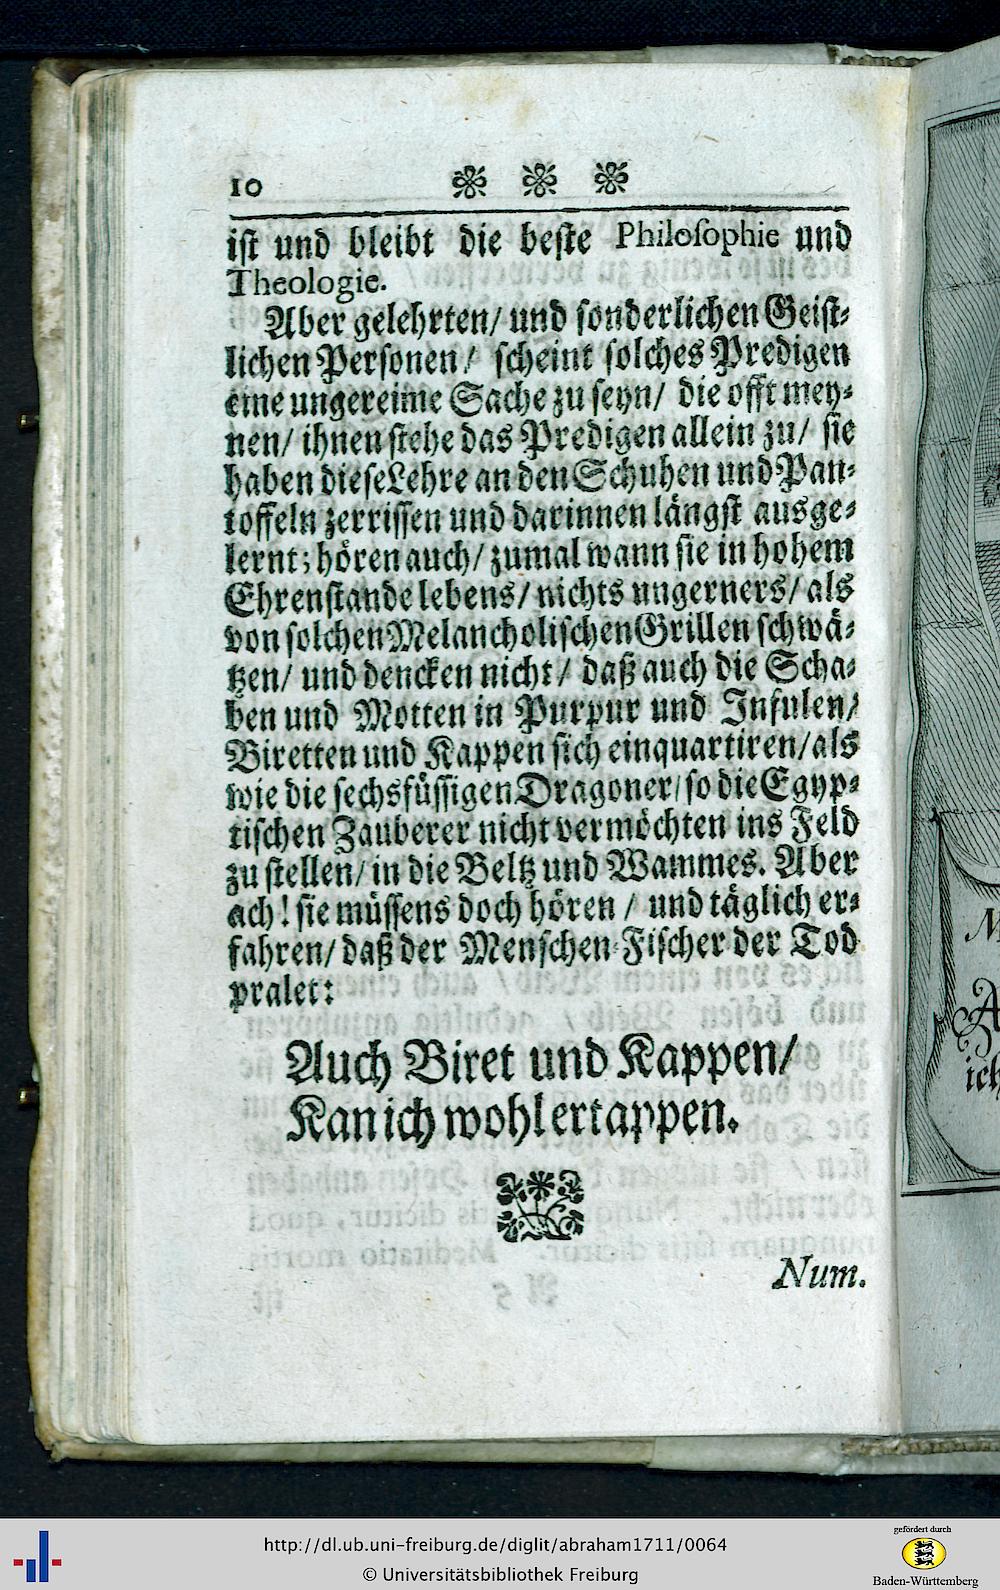 10
ist und bleibt die beste Philosophie und
Theologie.
Aber gelehrten/ und sonderlichen Geist-
lichen Personen/ scheint solches Predigen
eine ungereime Sache zu seyn/ die offt mey-
nen/ ihnen stehe das Predigen allein zu/ sie
haben diese Lehre an den Schuhen und Pan-
toffeln zerrissen und darinnen längst ausge-
lernt; hören auch/ zumal wann sie in hohem
Ehrenstande lebens/ nichts ungerners/ als
von solchen Melancholischen Grillen schwä-
tzen/ und dencken nicht/ daß auch die Scha-
ben und Motten in Purpur und Infulen/
Biretten und Kappen sich einquartiren/ als
wie die sechsfüssigen Dragoner/ so die Egyp-
tischen Zauberer nicht vermöchten ins Feld
zu stellen/ in die Beltz und Wammes. Aber
ach! sie müssens doch hören/ und täglich er-
fahren/ daß der Menschen-Fischer der Tod
pralet:
Auch Biret und Kappen/
Kan ich wohl ertappen.
Num.
http://dl.ub.uni-freiburg.de/diglit/abraham1711/0064
© Universitätsbibliothek Freiburg
gefördert durch
Baden-Württemberg